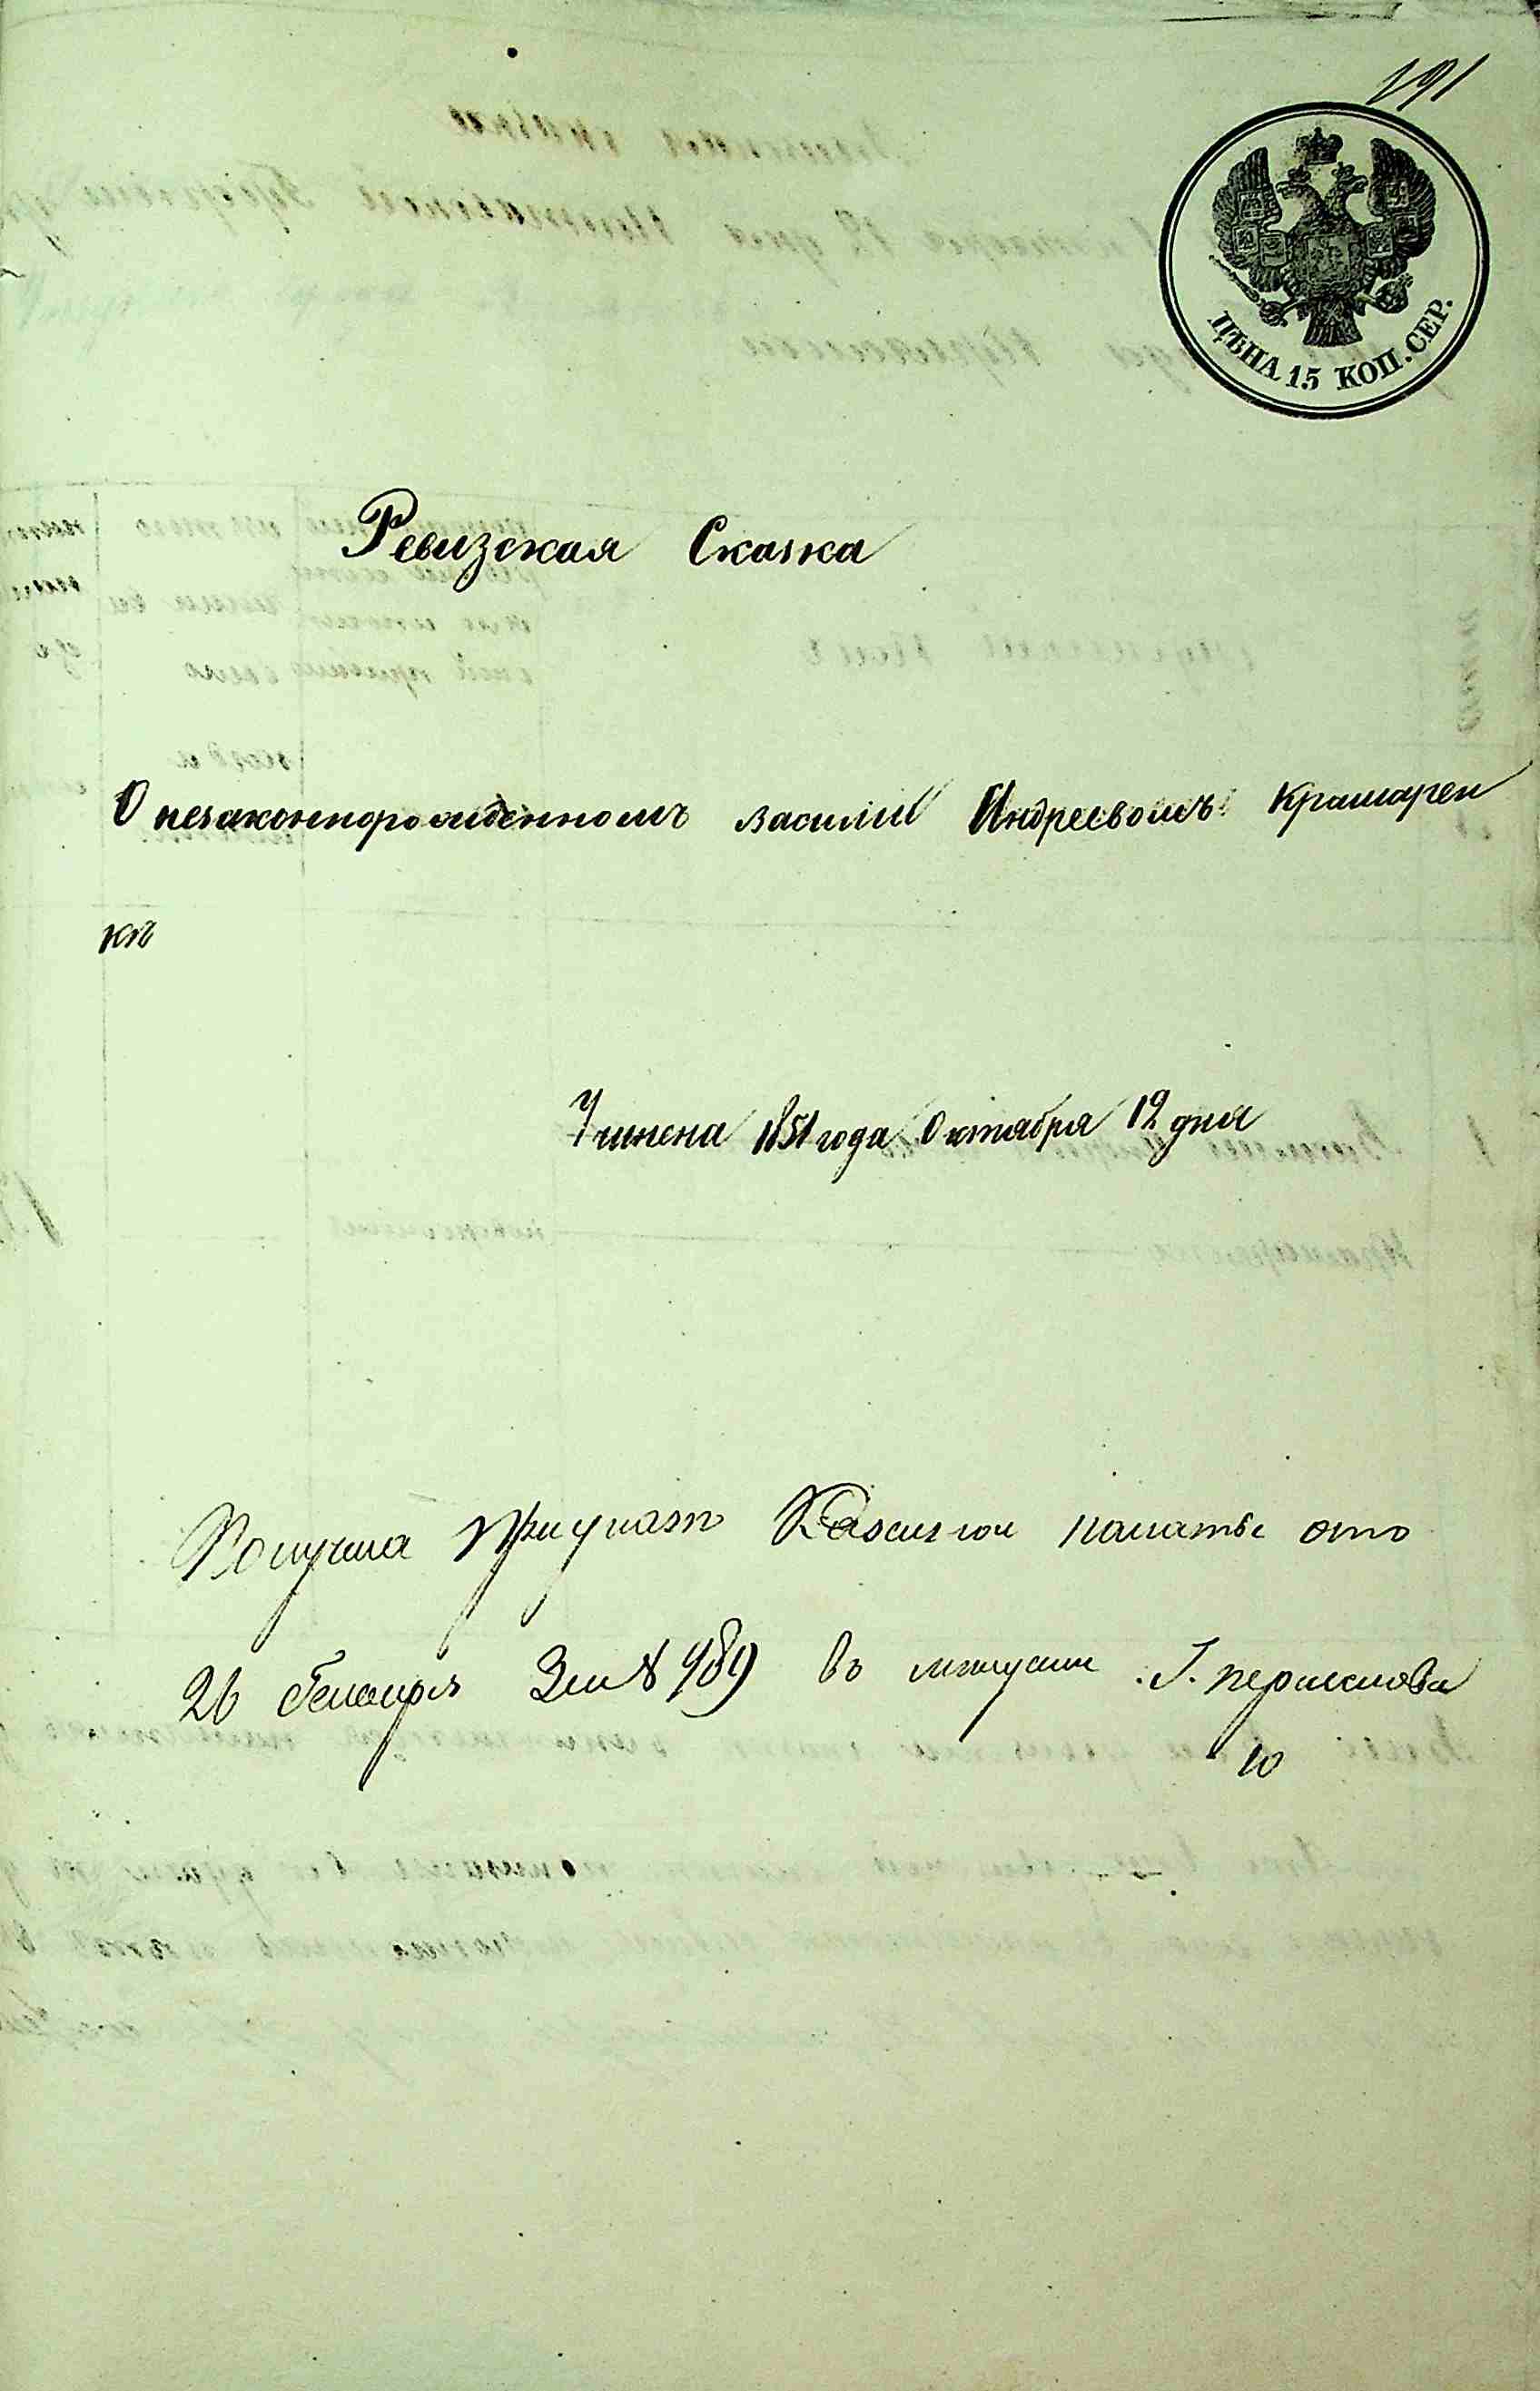 191
ЦѢНА 15 КОП. СЕР.
Ревизская Сказка
О незаконнорожденномъ Василіи Андреевомъ Крамарен
кѣ
Учинена 1851 года Октября 12 дня
Получена при указѣ Казенной палаты отъ
26 Генваря За № 989 въ